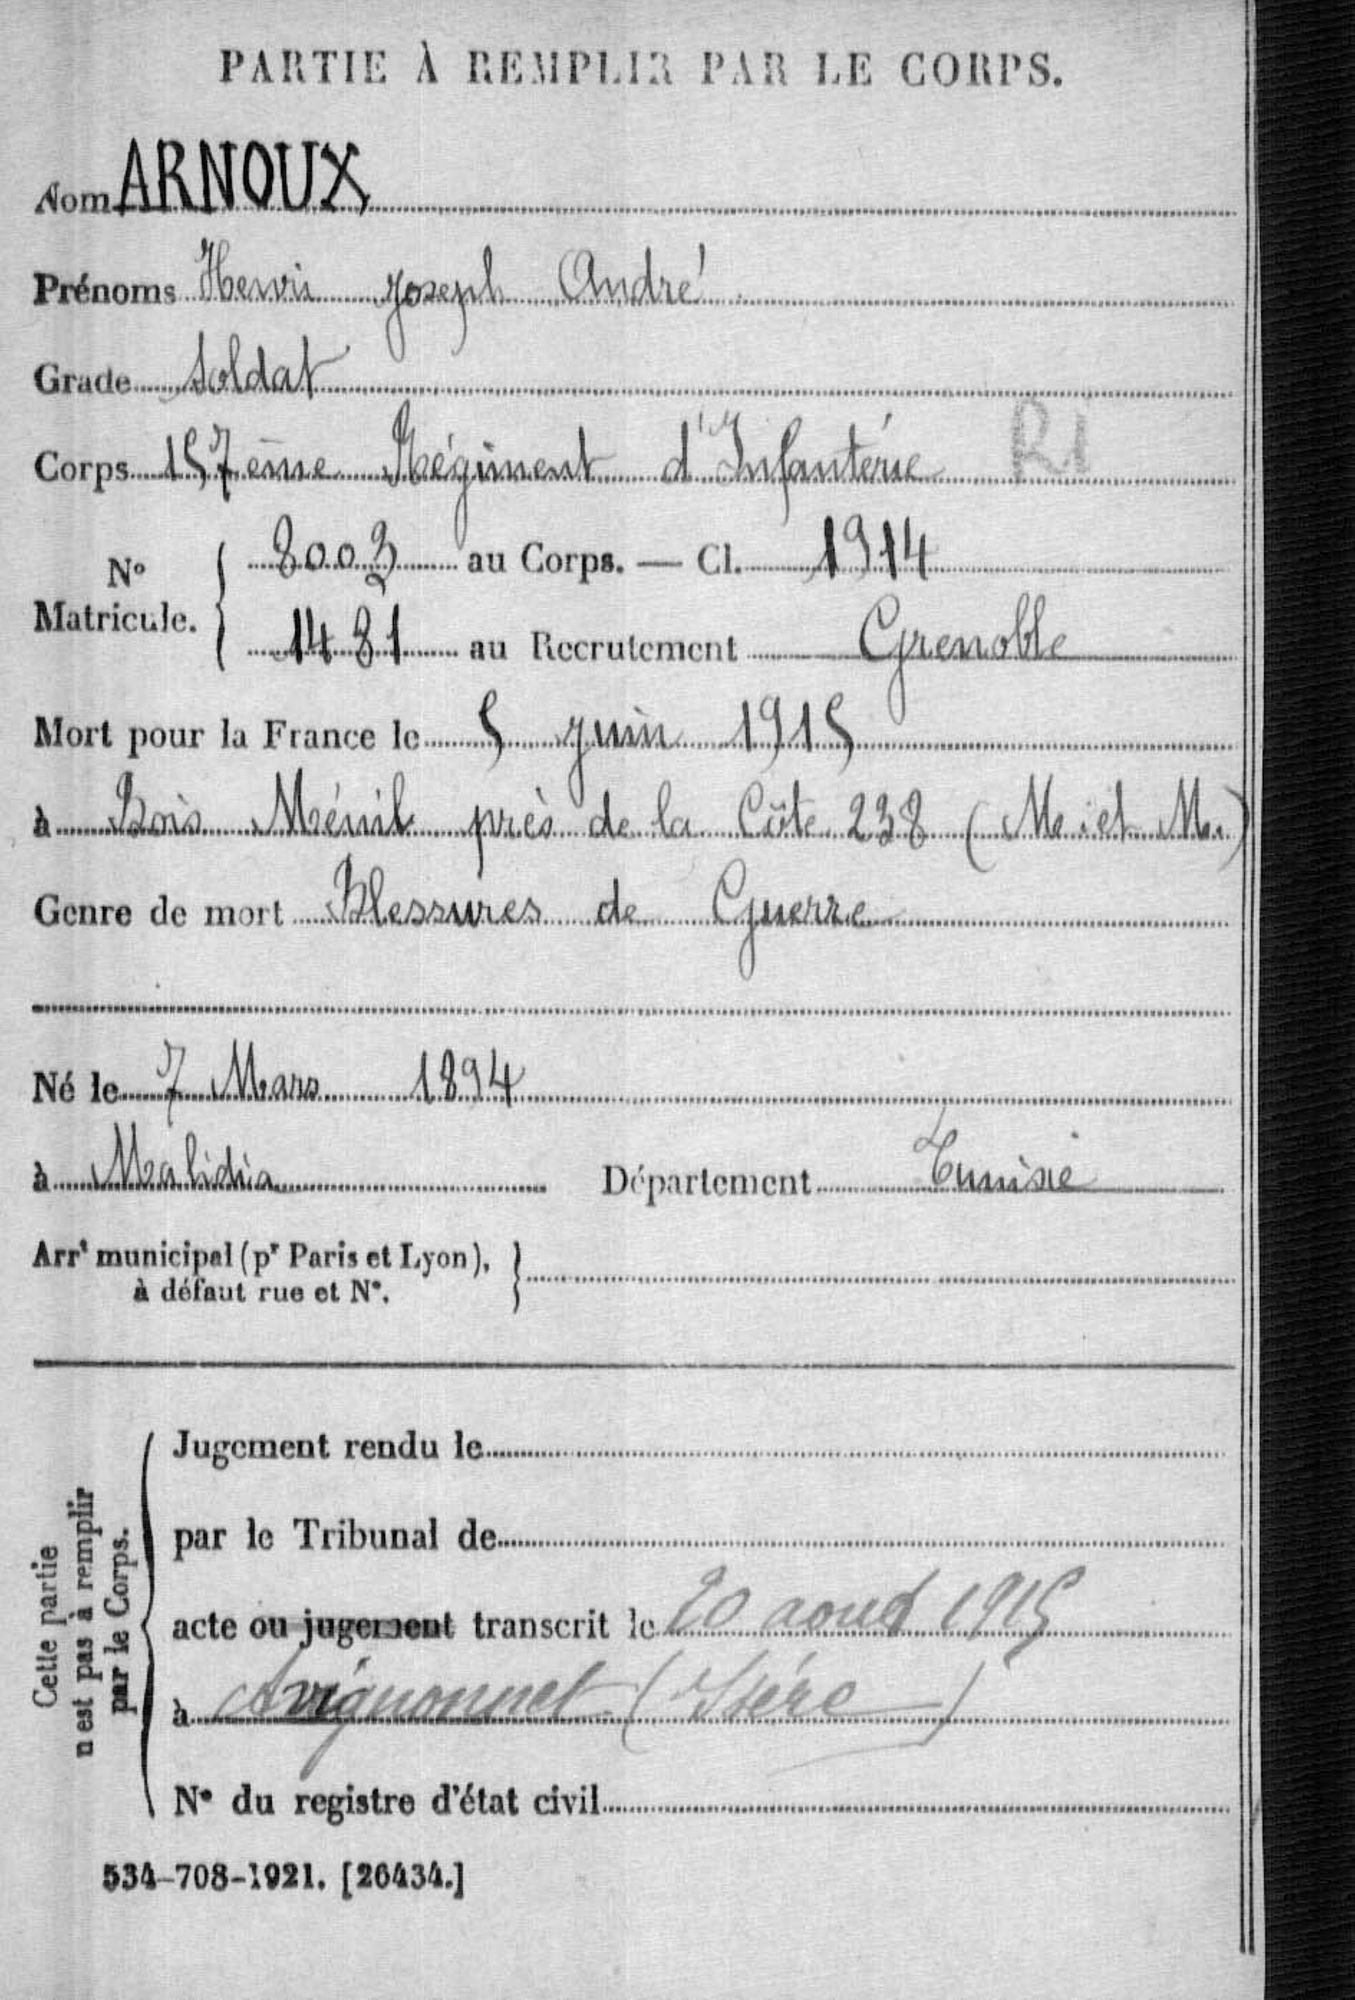 PARTIE À REMPLIR PAR LE CORPS.
Nom ARNOUX
Prénoms Henri Joseph André
Grade Soldat
Corps 157ème Régiment d'Infanterie RI
No Matricule. 8003 au Corps. — Cl. 1914
1481 au Recrutement Grenoble
Mort pour la France le 5 juin 1915
à Bois Ménil près de la Côte 238 (M. et M.)
Genre de mort Blessures de Guerre
Né le 7 Mars 1894
à Mahidia Département Tunisie
Arrt municipal (pr Paris et Lyon),
à défaut rue et No.
Cette partie n'est pas à remplir par le Corps.
Jugement rendu le
par le Tribunal de
acte ou jugement transcrit le 20 aout 1915
à Avignonnet (Isére)
No du registre d'état civil
534-708-1921. [26434.]